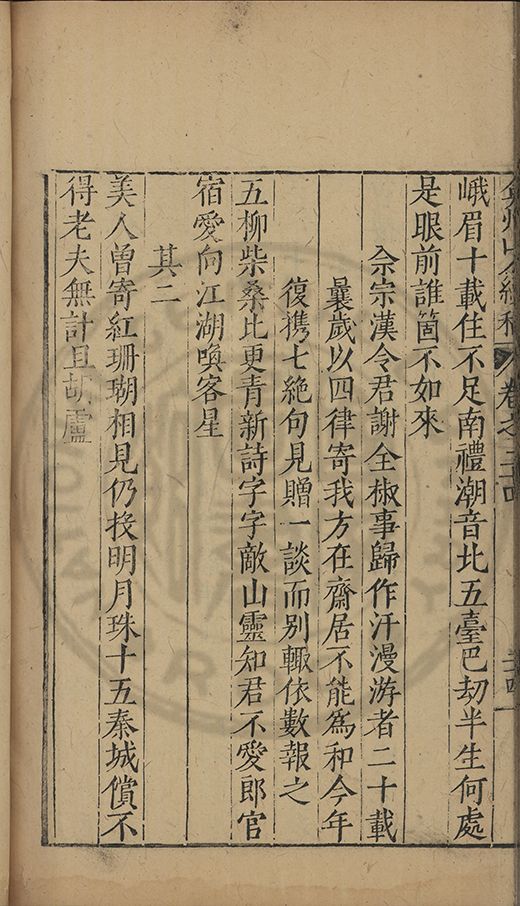 弇州山人續稿 卷之二十四 二十四
峨眉十載住不足南禮潮音北五臺巴劫半生何處
是眼前誰箇不如來
余宗漢令君謝全椒事歸作汗漫游者二十載
曩歲以四律寄我方在齋居不能爲和今年
復携七絶句見贈一談而别輙依數報之
五柳柴桑比更青新詩字字敵山靈知君不愛郎官
宿愛向江湖喚客星
其二
美人曽寄紅珊瑚相見仍投明月珠十五秦城償不
得老夫無計且胡盧